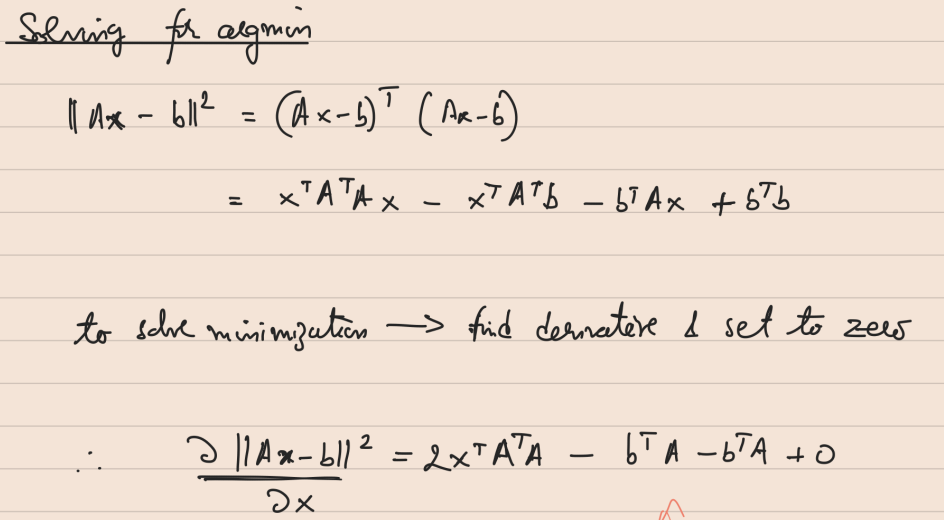 Solving for argmin
||Ax - b||² = (Ax-b)ᵀ (Ax-b)
= xᵀAᵀAx - xᵀAᵀb - bᵀAx + bᵀb
to solve minimization → find derivative & set to zero
∴ ∂||Ax-b||² / ∂x = 2xᵀAᵀA - bᵀA - bᵀA + 0